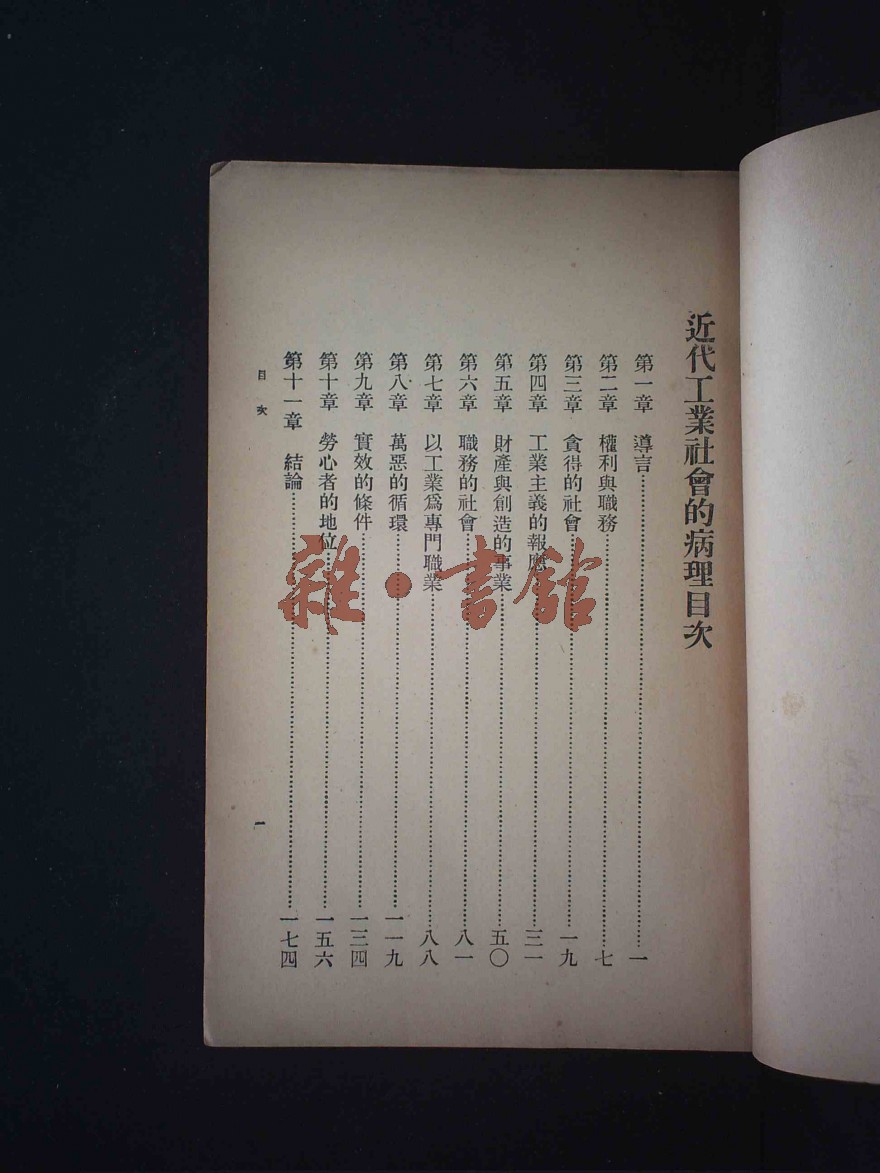 近代工業社會的病理目次
第一章 導言…………一
第二章 權利與職務…………七
第三章 貪得的社會…………一九
第四章 工業主義的報應…………三一
第五章 財產與創造的事業…………五〇
第六章 職務的社會…………八一
第七章 以工業爲專門職業…………八八
第八章 萬惡的循環…………一一九
第九章 實效的條件…………一三四
第十章 勞心者的地位…………一五六
第十一章 結論…………一七四
目次
一
雜·書館